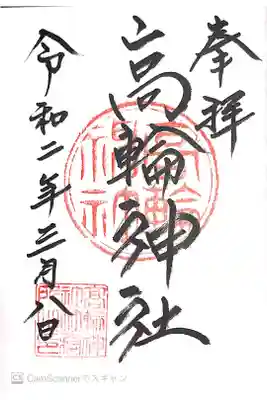 奉拝
高輪神社
令和二年三月八日
高輪神社
CS CamScanner でスキャン